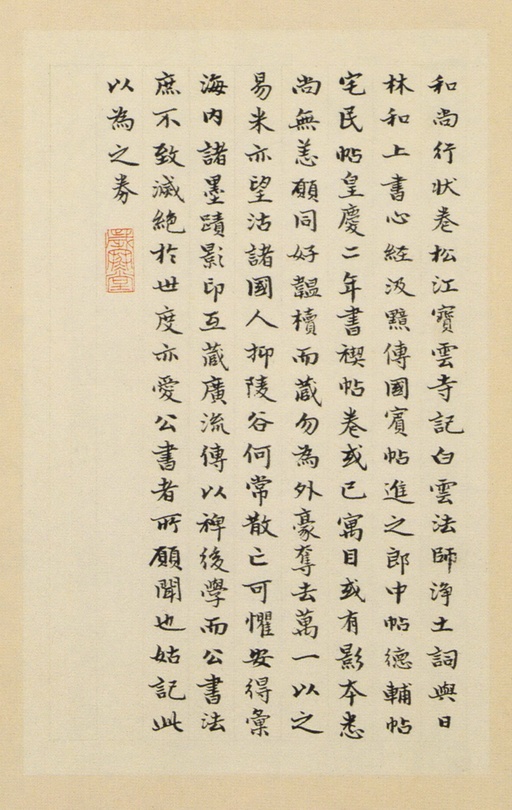 和尚行狀卷松江寶雲寺記白雲法師淨土詞與日
林和上書心経汲黯傳國賓帖進之郎中帖德輔帖
宅民帖皇慶二年書禊帖卷或已寓目或有影本悉
尚無恙願同好韞櫝而藏勿為外豪奪去萬一以之
易米亦望沽諸國人抑陵谷何常散亡可懼安得彙
海内諸墨蹟影印互藏廣流傳以裨後學而公書法
庶不致滅絕於世度亦愛公書者所願聞也姑記此
以為之券